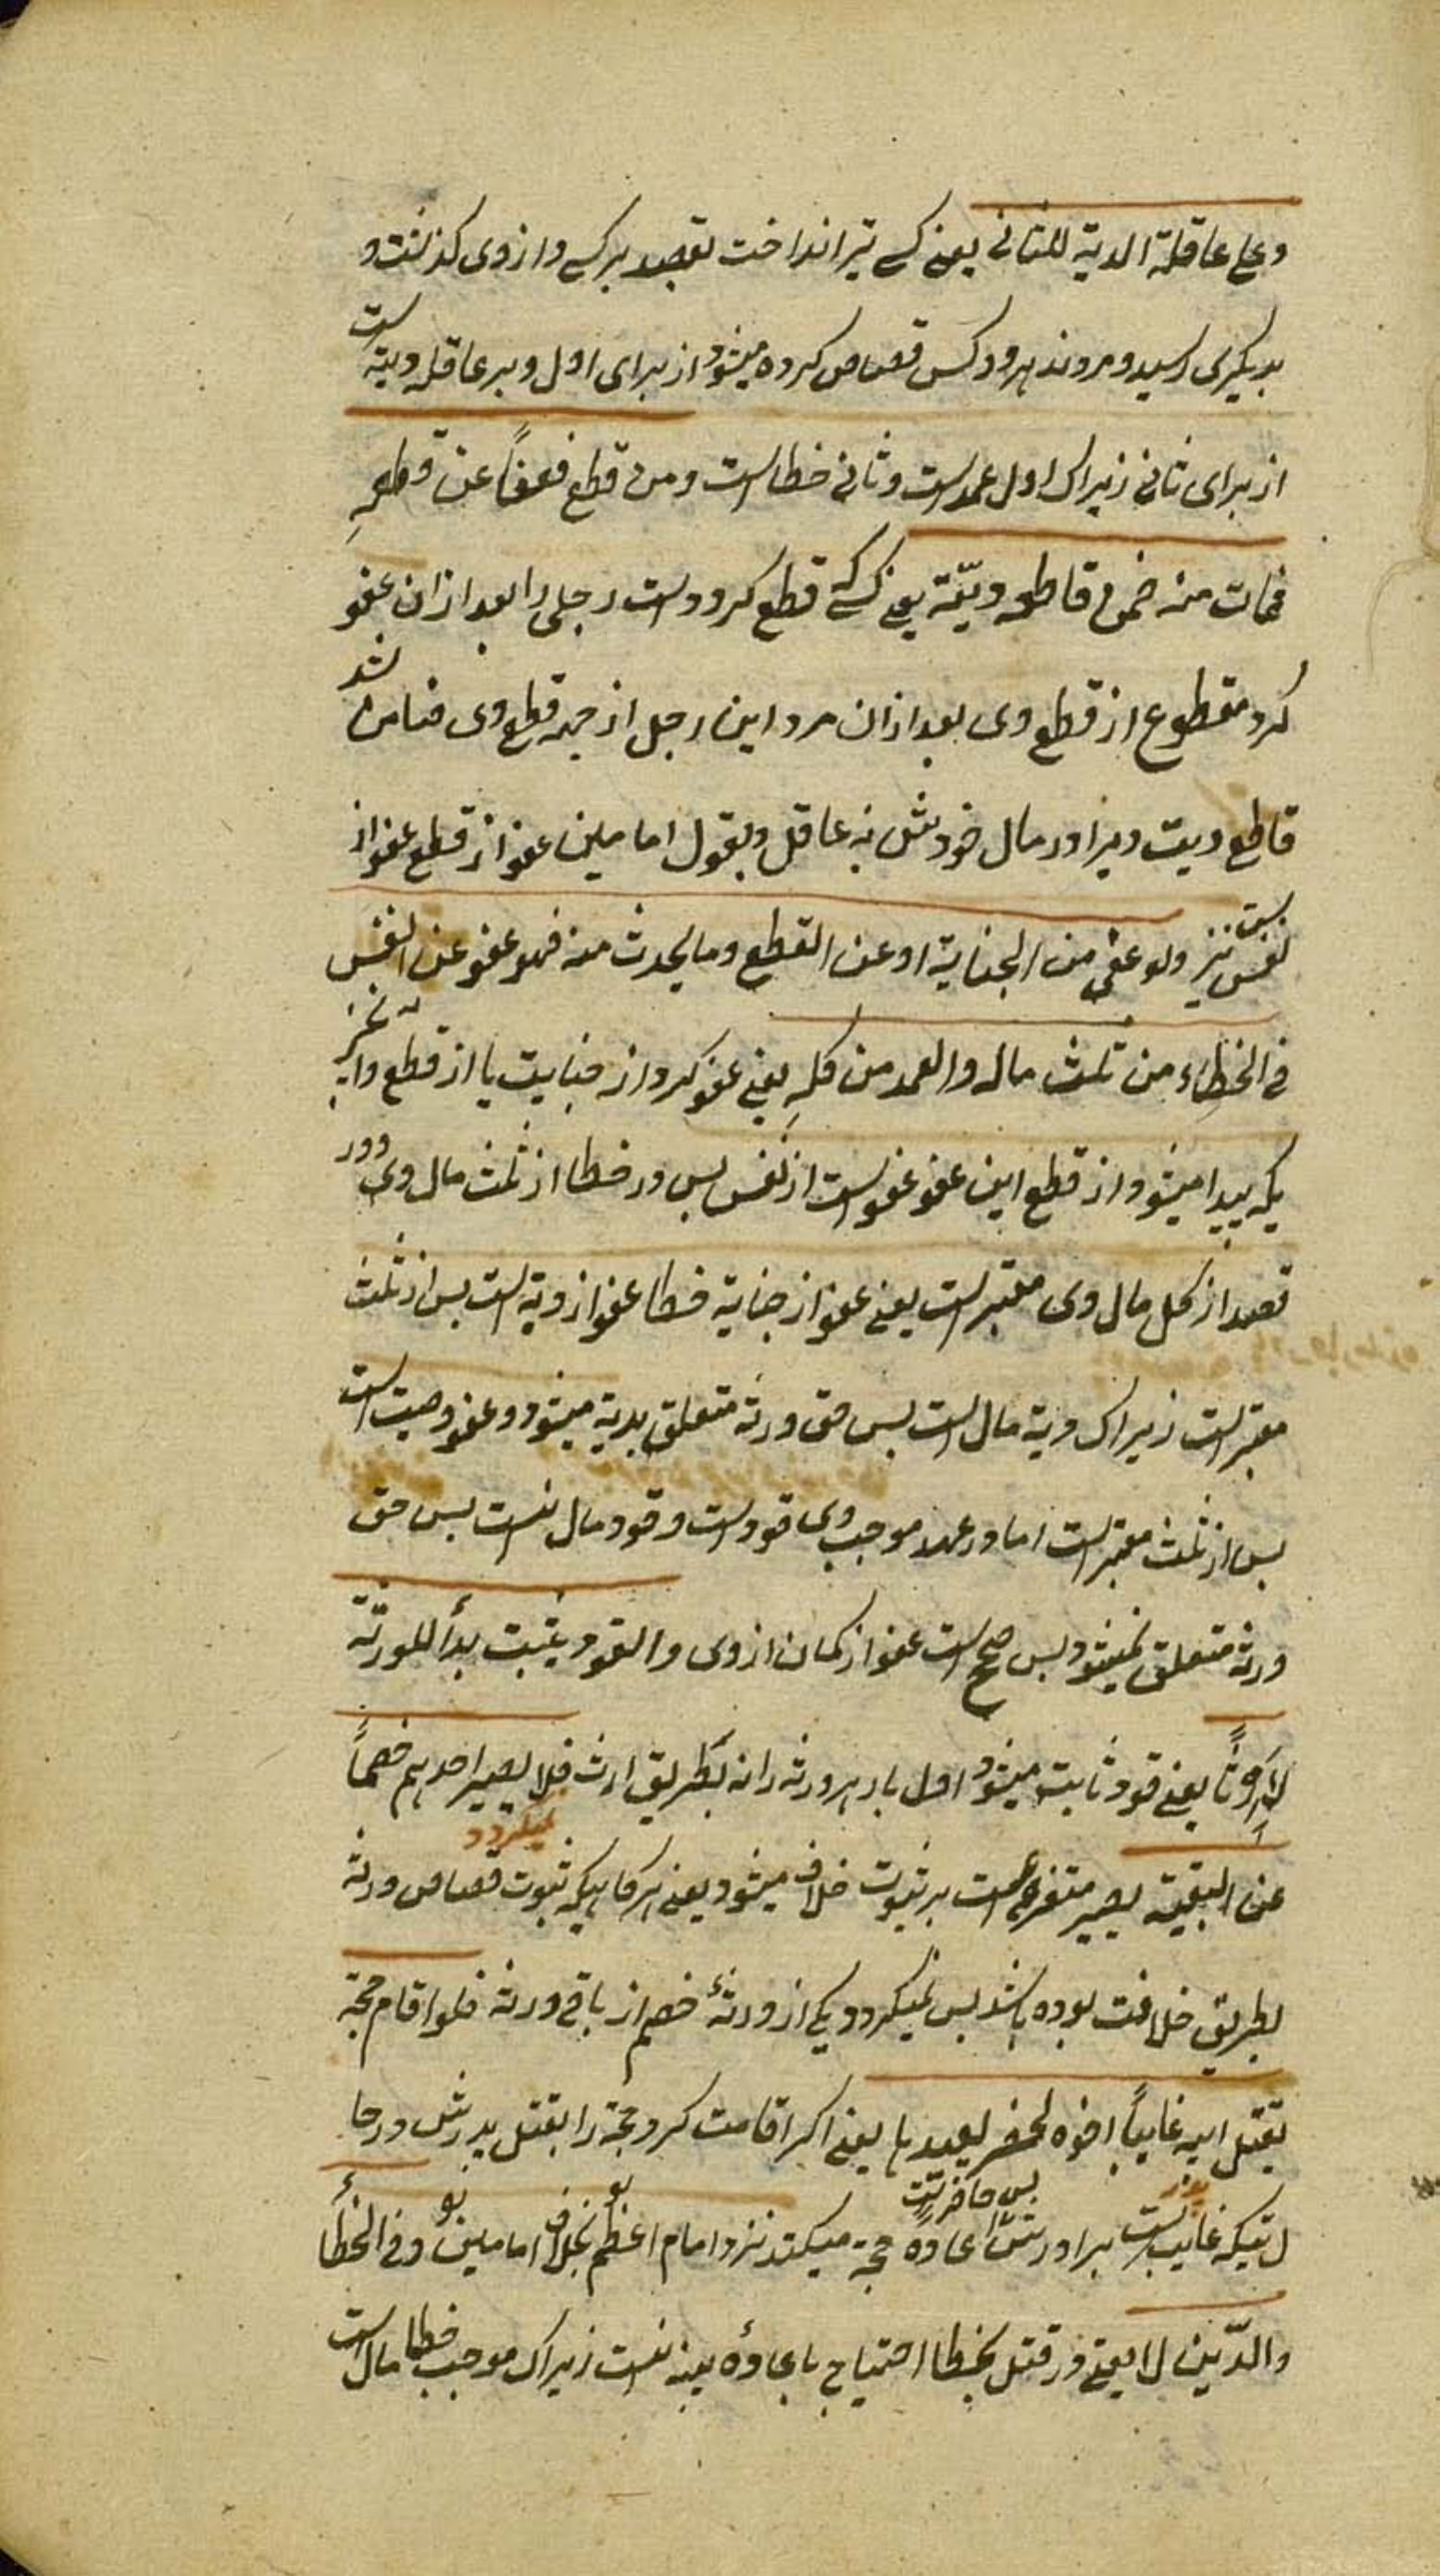 وعلی عاقلة الدیة للثانی یعنی کسی تیر انداخت بقصد بر کسی و از وی کذشت و
بدیکری رسید و مردند هر دو کس قصاص کرده میشود از برای اول و بر عاقله دیة است
از برای ثانی زیراک اول عمد است و ثانی خطا است ومن قطع فعفاً عن قطعهِ
فمات منه ضمن قاطعه دیّته یعنی کسی که قطع کرد دست رجلی را بعد ازان عفو
کرد مقطوع از قطع وی بعد ازان مرد این رجل از جهة قطع وی ضامن شد
قاطع دیت ویرا در مال خودش نه عاقل و بقول امامین عفو از قطع عفو از
نفس است نیز ولو عفی من الجنایة او عن القطع وما یحدث منه فهو عفو عن النفس
فی الخطاء من ثلث ماله والعمد من کلهِ یعنی عفو کرد از جنایت یا از قطع و از نچیز
یکه پیدا میشود از قطع این عفو عفو است از نفس پس در خطا از ثلث مال وی و در
قصد از کل مال وی معتبر است یعنی عفو از جنایة خطا عفو از دیة است پس از ثلث
معتبر است زیراک دیة مال است پس حق ورثه متعلق بدیة میشود و عفو وصیت است
پس از ثلث معتبر است اما در عمد موجب وی قود است و قود مال نیست پس حق
ورثه متعلق نمیشود پس صحیح است عفو از کمان از وی والقود یثبت بدأ للورثة
لا اِرثاً یعنی قود ثابت میشود اول بار هر ورثه را نه بطریق ارث فلا یصیر احدهم خصماً
عن البقیة یصیر متفرع است بر ثبوت خلاف میشود یعنی هر کاهیکه ثبوت قصاص ورثه
بطریق خلافت بوده باشد پس نمیکردد یکی از ورثهٔ خصم از باقی ورثه فلو اقام حجة
بقتل ابیه غایباً اخوه فحضر یعیدها یعنی اکر اقامت کرد حجة را بقتل پدرش در حا
لتیکه غایب است برادرش پس حاضر شد اعادهٔ حجة میکند نزد امام اعظم بخلاف امامین وفی الخطأ
والدّین لا یعنی در قتل بخطا احتیاج باعادهٔ بینه نیست زیراک موجب خطا مال است